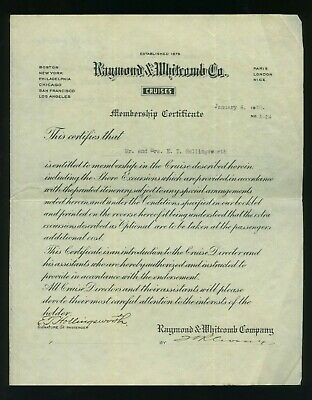 ESTABLISHED 1879
BOSTON
NEW YORK
PHILADELPHIA
CHICAGO
SAN FRANCISCO
LOS ANGELES
Raymond & Whitcomb Co.
CRUISES
PARIS
LONDON
NICE
January 4,
Membership Certificate
No.
This certifies that
Mr. and Mrs. E. I. Hollingsworth
is entitled to membership in the Cruise described herein
including the Shore Excursions which are provided in accordance
with the printed itinerary, subject to any special arrangements
noted hereon and under the Conditions specified in our booklet
and printed on the reverse hereof it being understood that the extra
excursions described as Optional are to be taken at the passengers
additional cost.
This Certificate is an introduction to the Cruise Director and
his assistants who are hereby authorized and instructed to
provide in accordance with the endorsement.
All Cruise Directors and their assistants will please
devote their most careful attention to the interests of the
holder
Hollingsworth
SIGNATURE OF PASSENGER
Raymond & Whitcomb Company
BY